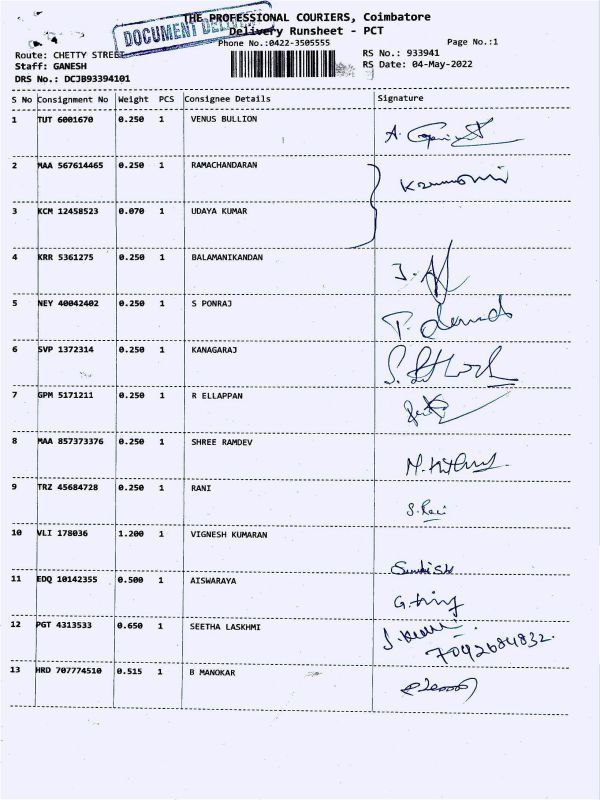 THE PROFESSIONAL COURIERS, Coimbatore
DOCUMENT
Delivery Runsheet - PCT
Phone No.:0422-3505555
Page No.:1
Route: CHETTY STREET
RS No.: 933941
Staff: GANESH
RS Date: 04-May-2022
DRS No.: DCJB93394101
S No Consignment No Weight PCS Consignee Details Signature
1 TUT 6001670 0.250 1 VENUS BULLION
2 MAA 567614465 0.250 1 RAMACHANDARAN
3 KCM 12458523 0.070 1 UDAYA KUMAR
4 KRR 5361275 0.250 1 BALAMANIKANDAN
5 NEY 40042402 0.250 1 S PONRAJ
6 SVP 1372314 0.250 1 KANAGARAJ
7 GPM 5171211 0.250 1 R ELLAPPAN
8 MAA 857373376 0.250 1 SHREE RAMDEV
9 TRZ 45684728 0.250 1 RANI
10 VLI 178036 1.200 1 VIGNESH KUMARAN
11 EDQ 10142355 0.500 1 AISWARAYA
12 PGT 4313533 0.650 1 SEETHA LASKHMI
7092684832.
13 HRD 707774510 0.515 1 B MANOKAR